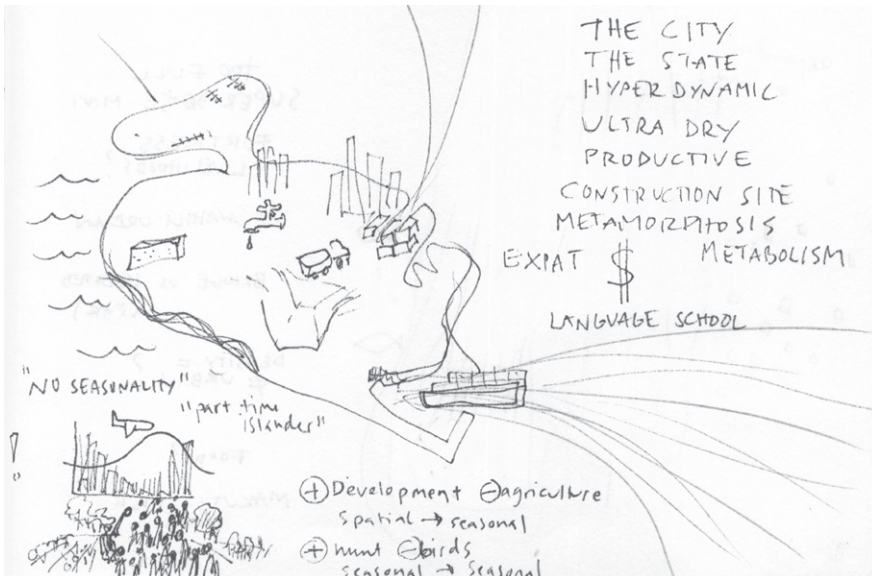 THE CITY
THE STATE
HYPERDYNAMIC
ULTRA DRY
PRODUCTIVE
CONSTRUCTION SITE
METAMORPHOSIS
METABOLISM
EXPAT $
LANGUAGE SCHOOL
"NO SEASONALITY"
"part time
islander"
!
+ Development - agriculture
spatial → seasonal
+ hunt - birds
seasonal → seasonal